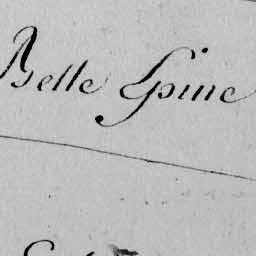 Belle Epine